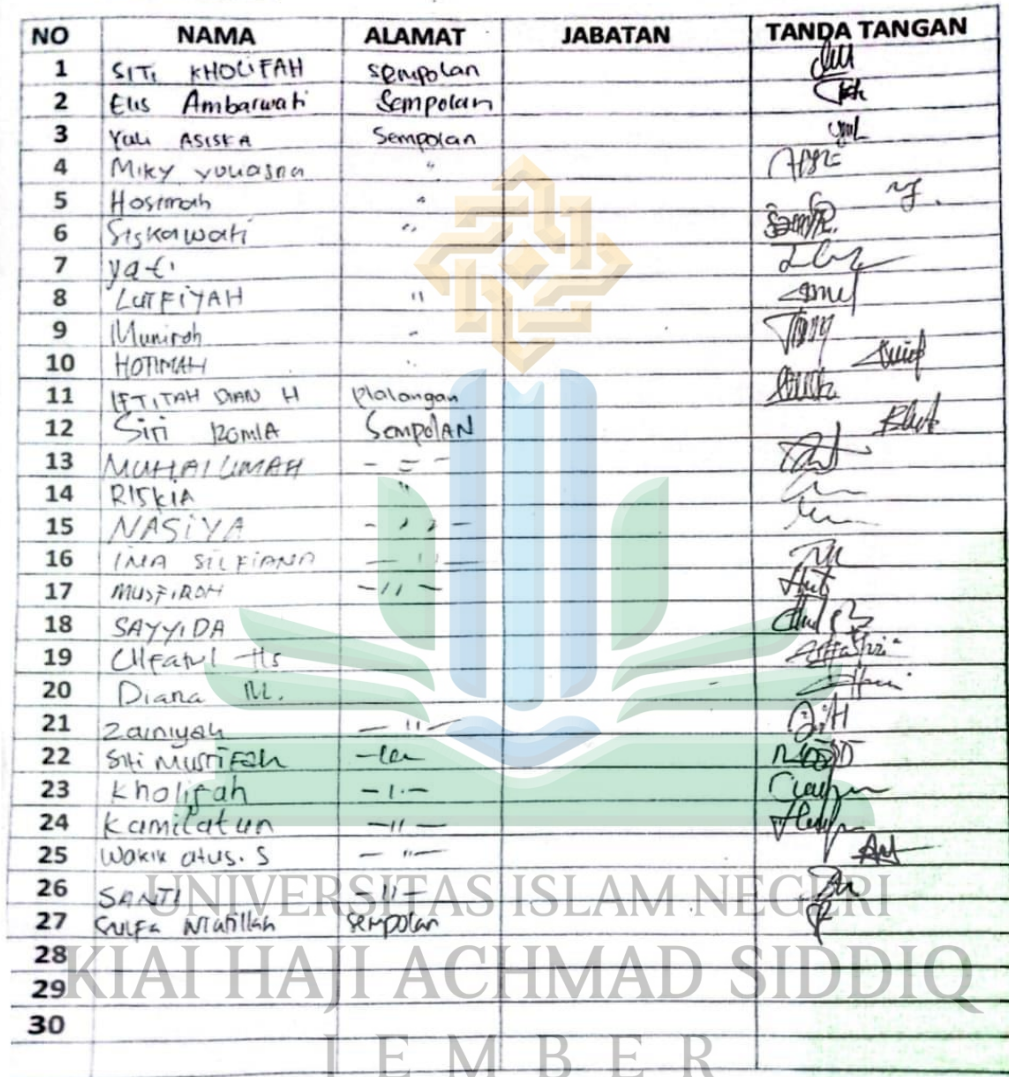 NO NAMA ALAMAT JABATAN TANDA TANGAN
1 SITI KHOLIFAH Sempolan
2 Elis Ambarwati Sempolan
3 Yuli ASISKA Sempolan
4 Miky "
5 Hosimah "
6 Siskawati "
7 yati
8 LUTFIYAH "
9 Muniroh "
10 HOTIMAH "
11 IFTITAH DIAN H Plalangan
12 Siti ROMLA Sempolan
13 MUHAILIMAH - = -
14 RISKIA "
15 NASIYA - " -
16 INA SILFIANA - " -
17 MUSFIROH - " -
18 SAYYIDA
19 Ulfatul Hs
20 Diana M.
21 Zainiyah - " -
22 Siti
23 Kholifah - " -
24 Kamilatun - " -
25 Wakik atus. S - " -
26 SANTI - " -
27 Sempolan
28
29
30
UNIVERSITAS ISLAM NEGERI
KIAI HAJI ACHMAD SIDDIQ
JEMBER